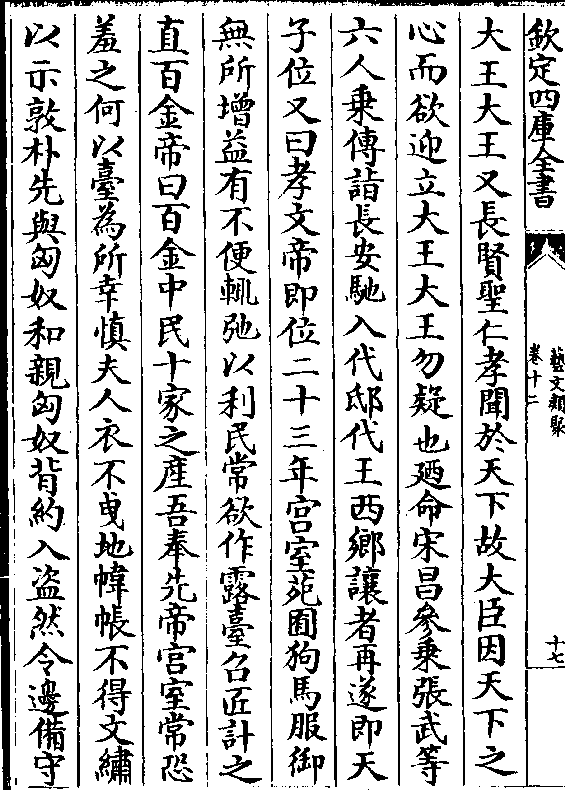 欽定四庫全書
藝文類聚
卷十二
十七
大王大王又長賢聖仁孝聞於天下故大臣因天下之
心而欲迎立大王大王勿疑也廼命宋昌參乗張武等
六人乗傳詣長安馳入代邸代王西鄉讓者再遂即天
子位又曰孝文帝即位二十三年宫室苑囿狗馬服御
無所增益有不便輒弛以利民常欲作露臺召匠計之
直百金帝曰百金中民十家之産吾奉先帝宫室常恐
羞之何以臺為所幸慎夫人衣不曵地幃帳不得文繡
以示敦朴先與匈奴和親匈奴背約入盗然令邊備守